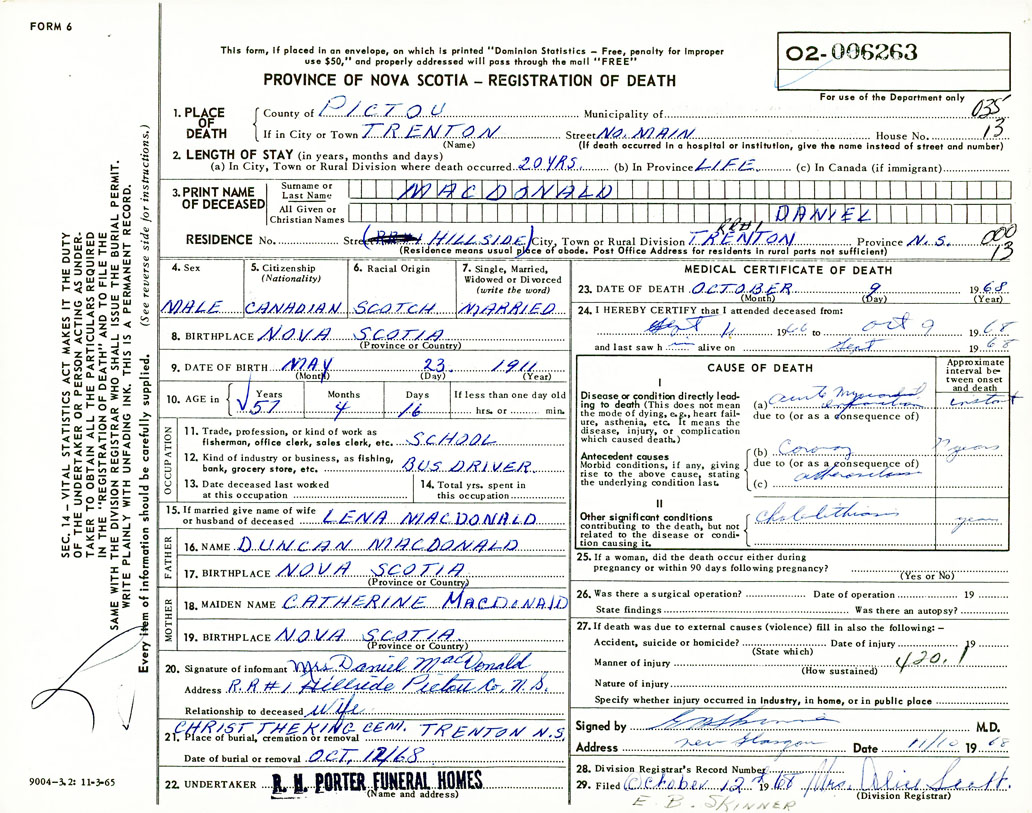 FORM 6
This form, if placed in an envelope, on which is printed "Dominion Statistics – Free, penalty for improper
use $50," and properly addressed will pass through the mail "FREE"
PROVINCE OF NOVA SCOTIA – REGISTRATION OF DEATH
02-006263
For use of the Department only
035
13
1. PLACE OF DEATH
County of PICTOU Municipality of
If in City or Town TRENTON Street No. MAIN House No.
(Name) (If death occurred in a hospital or institution, give the name instead of street and number)
2. LENGTH OF STAY (in years, months and days)
(a) In City, Town or Rural Division where death occurred 20 YRS. (b) In Province LIFE. (c) In Canada (if immigrant)
3. PRINT NAME OF DECEASED
Surname or Last Name MACDONALD
All Given or Christian Names DANIEL
RR#1
RESIDENCE No. Street (HILLSIDE) City, Town or Rural Division TRENTON Province N.S.
(Residence means usual place of abode. Post Office Address for residents in rural parts not sufficient)
000
13
4. Sex MALE
5. Citizenship (Nationality) CANADIAN
6. Racial Origin SCOTCH
7. Single, Married, Widowed or Divorced (write the word) MARRIED
8. BIRTHPLACE NOVA SCOTIA
(Province or Country)
9. DATE OF BIRTH MAY 23 1911
(Month) (Day) (Year)
10. AGE in Years 57 Months 4 Days 16 If less than one day old hrs. or min.
OCCUPATION
11. Trade, profession, or kind of work as
fisherman, office clerk, sales clerk, etc. SCHOOL
12. Kind of industry or business, as fishing,
bank, grocery store, etc. BUS DRIVER.
13. Date deceased last worked
at this occupation
14. Total yrs. spent in
this occupation
15. If married give name of wife
or husband of deceased LENA MACDONALD
FATHER
16. NAME DUNCAN MACDONALD
17. BIRTHPLACE NOVA SCOTIA
(Province or Country)
MOTHER
18. MAIDEN NAME CATHERINE MACDONALD
19. BIRTHPLACE NOVA SCOTIA.
(Province or Country)
20. Signature of informant Mrs Daniel MacDonald
Address R.R#1 Hillside Pictou Co. N.S.
Relationship to deceased Wife
CHRIST THE KING CEM. TRENTON N.S.
21. Place of burial, cremation or removal
Date of burial or removal OCT. 12/68
22. UNDERTAKER R. H. PORTER FUNERAL HOMES
(Name and address)
MEDICAL CERTIFICATE OF DEATH
23. DATE OF DEATH OCTOBER 9 1968
(Month) (Day) (Year)
24. I HEREBY CERTIFY that I attended deceased from:
Sept 19 to Oct 9 1968
and last saw h im alive on Sept 1968
CAUSE OF DEATH
Approximate interval between onset and death
I
Disease or condition directly leading to death (This does not
mean the mode of dying, e.g., heart failure, asthenia, etc. It means the
disease, injury, or complication
which caused death.)
(a) acute myocardial infarction instant
due to (or as a consequence of)
Antecedent causes
Morbid conditions, if any, giving
rise to the above cause, stating
the underlying condition last.
(b) Coronary years
due to (or as a consequence of)
(c) atherosclerosis
II
Other significant conditions
contributing to the death, but not
related to the disease or condition causing it.
Cholelithiasis years
25. If a woman, did the death occur either during
pregnancy or within 90 days following pregnancy?
(Yes or No)
26. Was there a surgical operation? Date of operation 19
State findings Was there an autopsy?
27. If death was due to external causes (violence) fill in also the following: –
Accident, suicide or homicide? Date of injury 19
(State which)
Manner of injury 420.1
(How sustained)
Nature of injury
Specify whether injury occurred in Industry, in home, or in public place
Signed by M.D.
Address New Glasgow Date 11/10 1968
28. Division Registrar's Record Number
29. Filed October 12th 1968 Mrs. Alice Scott.
(Division Registrar)
E. B. SKINNER
SEC. 14 – VITAL STATISTICS ACT MAKES IT THE DUTY
OF THE UNDERTAKER OR PERSON ACTING AS UNDER-
TAKER TO OBTAIN ALL THE PARTICULARS REQUIRED
IN THE "REGISTRATION OF DEATH" AND TO FILE THE
SAME WITH THE DIVISION REGISTRAR WHO SHALL ISSUE THE BURIAL PERMIT.
WRITE PLAINLY WITH UNFADING INK. THIS IS A PERMANENT RECORD.
Every item of information should be carefully supplied. (See reverse side for instructions.)
9004–3.2: 11-3-65